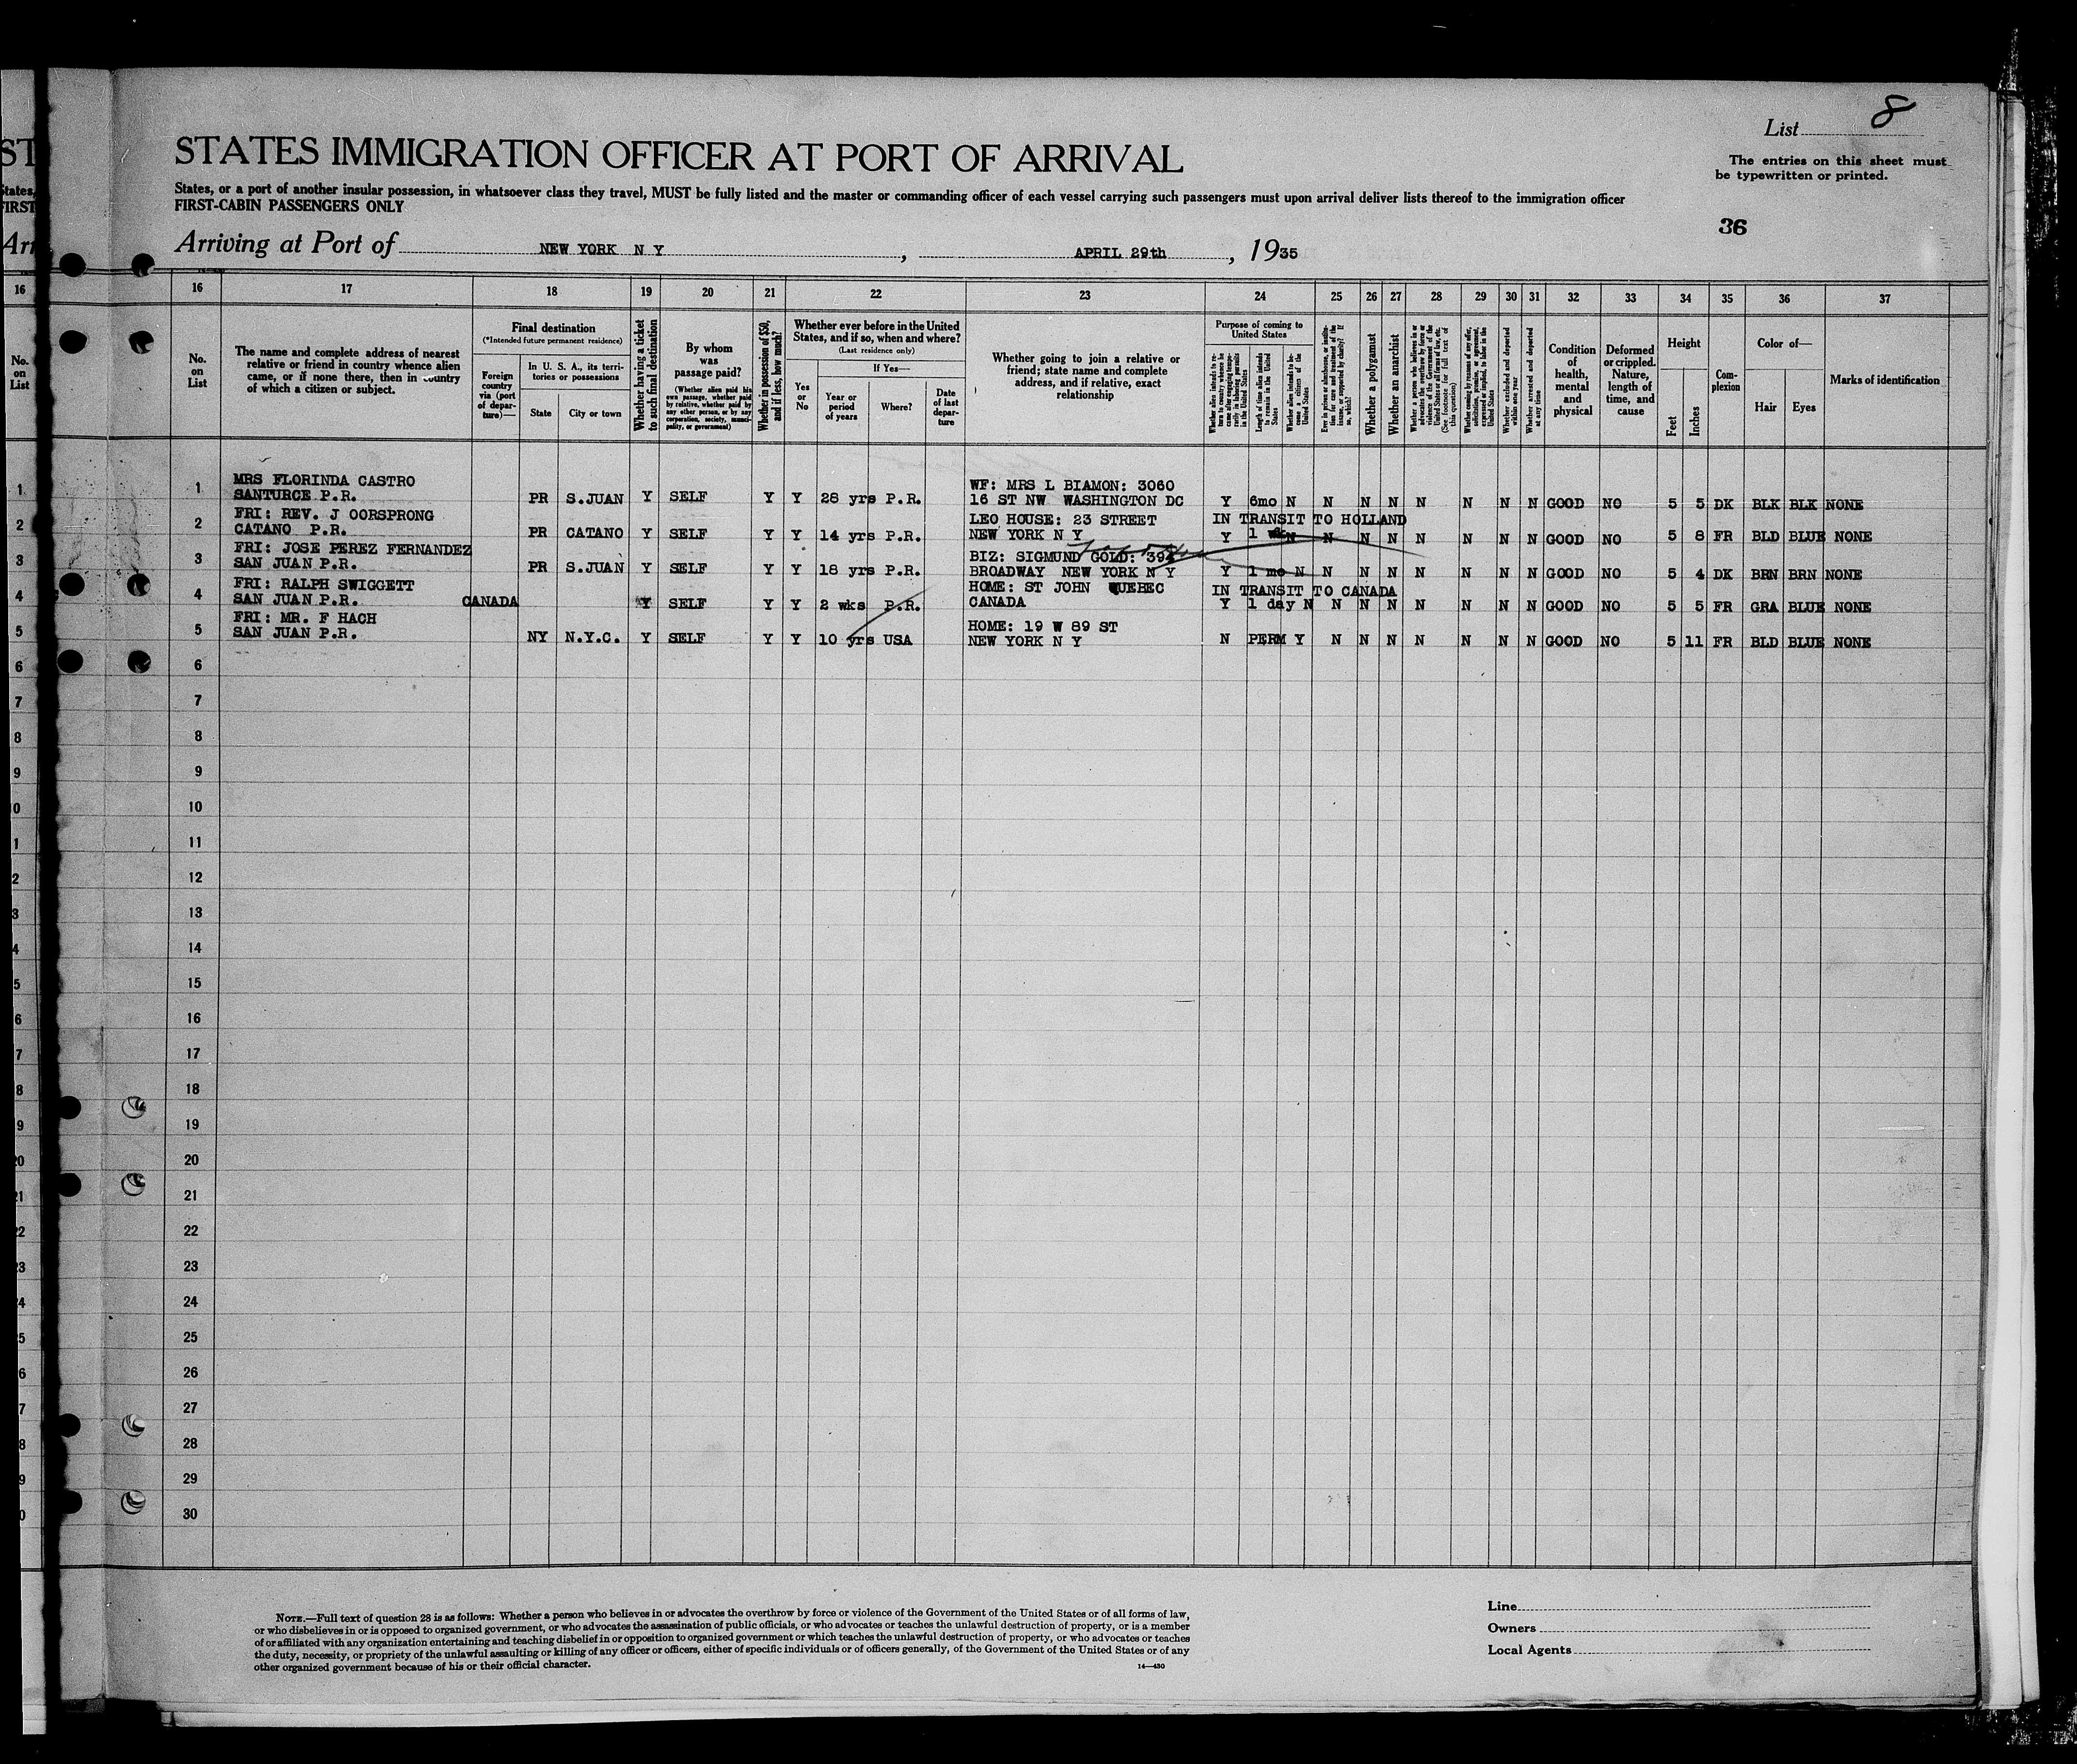 List 8
The entries on this sheet must
be typewritten or printed.
STATES IMMIGRATION OFFICER AT PORT OF ARRIVAL
States, or a port of another insular possession, in whatsoever class they travel, MUST be fully listed and the master or commanding officer of each vessel carrying such passengers must upon arrival deliver lists thereof to the immigration officer
FIRST-CABIN PASSENGERS ONLY
36
Arriving at Port of NEW YORK N Y , APRIL 29th , 1935
16 17 18 19 20 21 22 23 24 25 26 27 28 29 30 31 32 33 34 35 36 37
No. on List
The name and complete address of nearest
relative or friend in country whence alien
came, or if none there, then in country
of which a citizen or subject.
Final destination
(*Intended future permanent residence)
Foreign country via (port of departure)—
In U. S. A., its territories or possessions
State
City or town
Whether having a ticket to such final destination
By whom was passage paid?
(Whether alien paid his own passage, whether paid by relative, whether paid by any other person, or by any corporation, society, municipality, or government)
Whether in possession of $50, and if less, how much?
Whether ever before in the United
States, and if so, when and where?
(Last residence only)
Yes or No
If Yes—
Year or period of years
Where?
Date of last departure
Whether going to join a relative or
friend; state name and complete
address, and if relative, exact
relationship
Purpose of coming to United States
Length of time alien intends to remain in the United States
Whether alien intends to become a citizen of the United States
Whether a polygamist
Whether an anarchist
Whether excluded and deported within one year
Whether arrested and deported at any time
Condition of health, mental and physical
Deformed or crippled. Nature, length of time, and cause
Height
Feet
Inches
Complexion
Color of—
Hair
Eyes
Marks of identification
1 MRS FLORINDA CASTRO WF: MRS L BIAMON: 3060
SANTURCE P.R. PR S.JUAN Y SELF Y Y 28 yrs P.R. 16 ST NW WASHINGTON DC Y 6mo N N N N N N N N GOOD NO 5 5 DK BLK BLK NONE
2 FRI: REV. J OORSPRONG LEO HOUSE: 23 STREET IN TRANSIT TO HOLLAND
CATANO P.R. PR CATANO Y SELF Y Y 14 yrs P.R. NEW YORK N Y Y 1 N N N N N N N N GOOD NO 5 8 FR BLD BLUE NONE
3 FRI: JOSE PEREZ FERNANDEZ BIZ: SIGMUND GOLD: 394
SAN JUAN P.R. PR S.JUAN Y SELF Y Y 18 yrs P.R. BROADWAY NEW YORK N Y Y 1 mo N N N N N N N N GOOD NO 5 4 DK BRN BRN NONE
4 FRI: RALPH SWIGGETT HOME: ST JOHN QUEBEC IN TRANSIT TO CANADA
SAN JUAN P.R. CANADA Y SELF Y Y 2 wks P.R. CANADA Y 1 day N N N N N N N N GOOD NO 5 5 FR GRA BLUE NONE
5 FRI: MR. F HACH HOME: 19 W 89 ST
SAN JUAN P.R. NY N.Y.C. Y SELF Y Y 10 yrs USA NEW YORK N Y N PERM Y N N N N N N N GOOD NO 5 11 FR BLD BLUE NONE
6
7
8
9
10
11
12
13
14
15
16
17
18
19
20
21
22
23
24
25
26
27
28
29
30
NOTE.—Full text of question 28 is as follows: Whether a person who believes in or advocates the overthrow by force or violence of the Government of the United States or of all forms of law,
or who disbelieves in or is opposed to organized government, or who advocates the assassination of public officials, or who advocates or teaches the unlawful destruction of property, or is a member
of or affiliated with any organization entertaining and teaching disbelief in or opposition to organized government or which teaches the unlawful destruction of property, or who advocates or teaches
the duty, necessity, or propriety of the unlawful assaulting or killing of any officer or officers, either of specific individuals or of officers generally, of the Government of the United States or of any
other organized government because of his or their official character.
14—430
Line
Owners
Local Agents